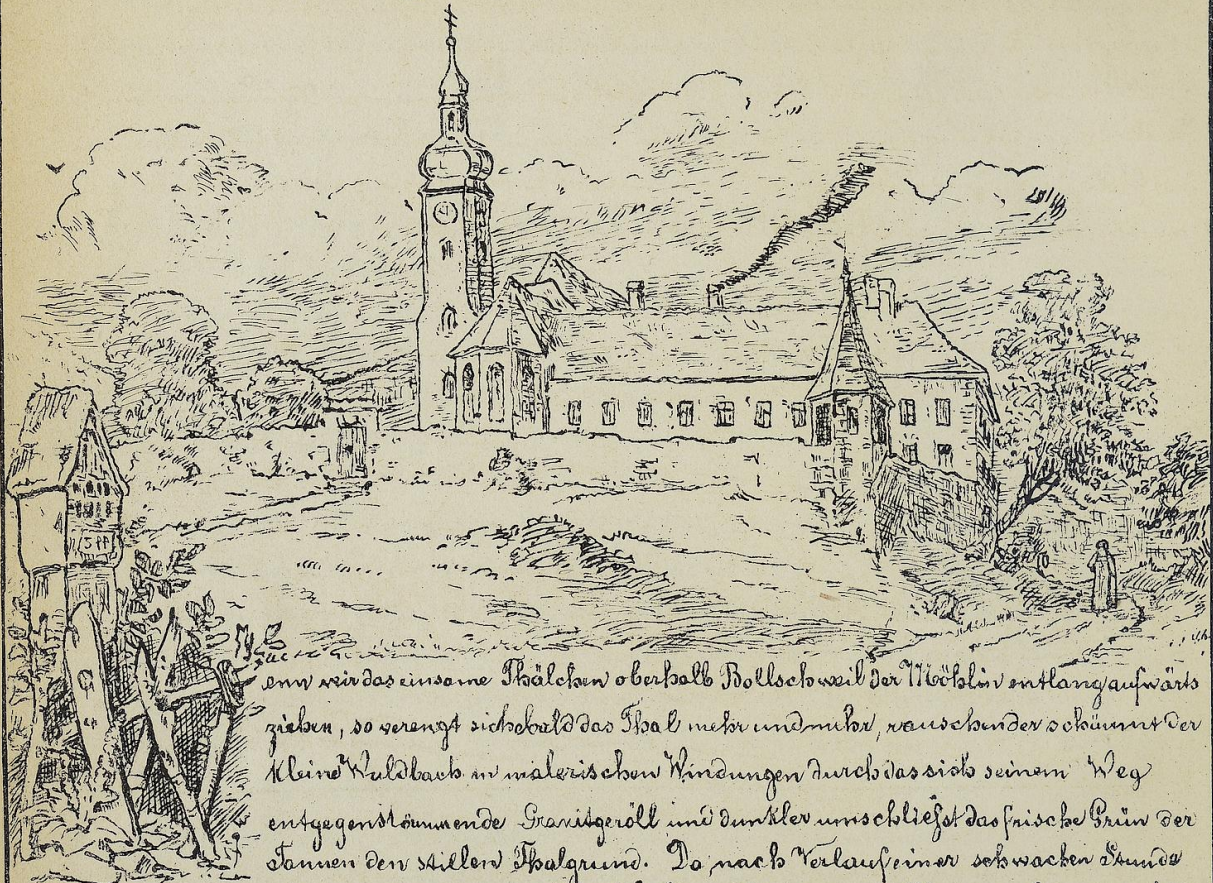 Wenn wir das einsame Thälchen oberhalb Bollschweil der Möhlin entlang aufwärts
ziehen, so verengt sich bald das Thal mehr und mehr, rauschender schäumt der
kleine Waldbach in malerischen Windungen durch das sich seinem Weg
entgegenstämmende Granitgeröll und dunkler umschließt das frische Grün der
Tannen den stillen Thalgrund. Da, nach Verlauf einer schwachen Stunde